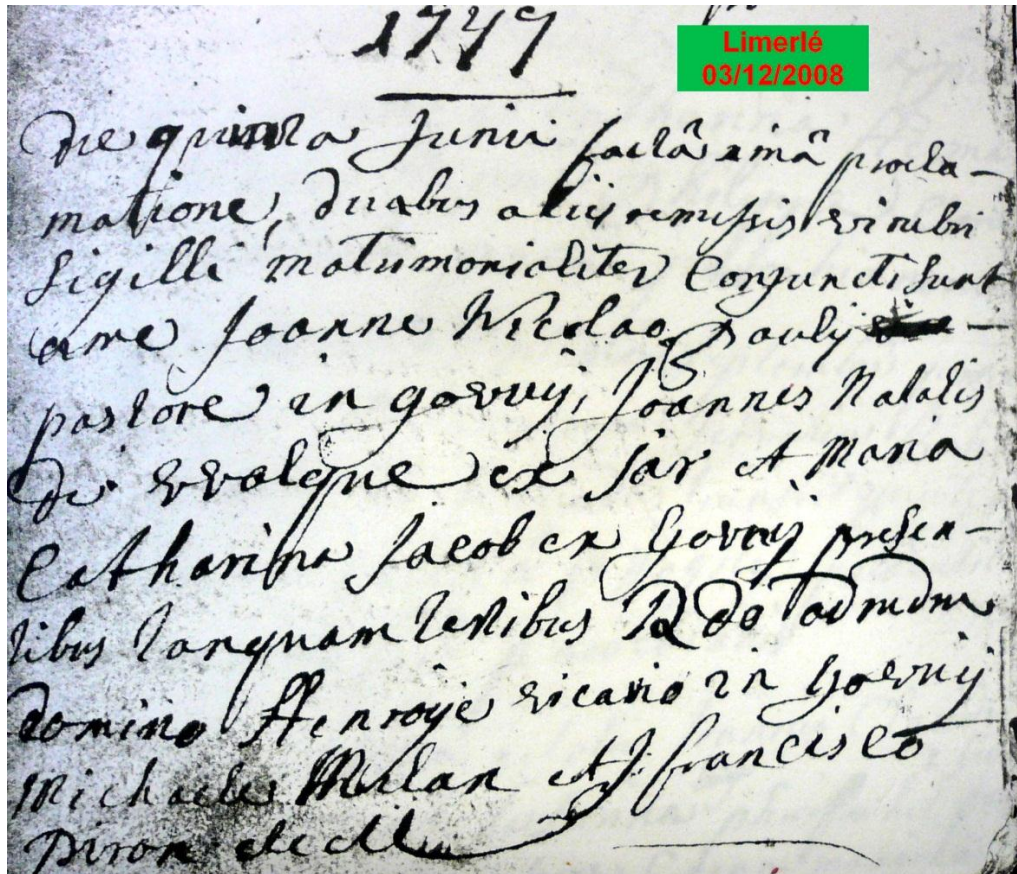 1747
Limerlé
03/12/2008
die quinta Junii factâ 1mâ procla-
matione, duabus aliis remissis vi rubri
sigilli matrimonialiter Conjuncti sunt
a me Joanne Nicolao Pauly
pastore in gouvy, Joannes Natalis
de ex et Maria
Catharina Jacob ex Gouvy presen-
tibus tanquam testibus Rdo admdm
domino Henroye vicario in Gouvy
Michaele Milan et J: francisco
Piron